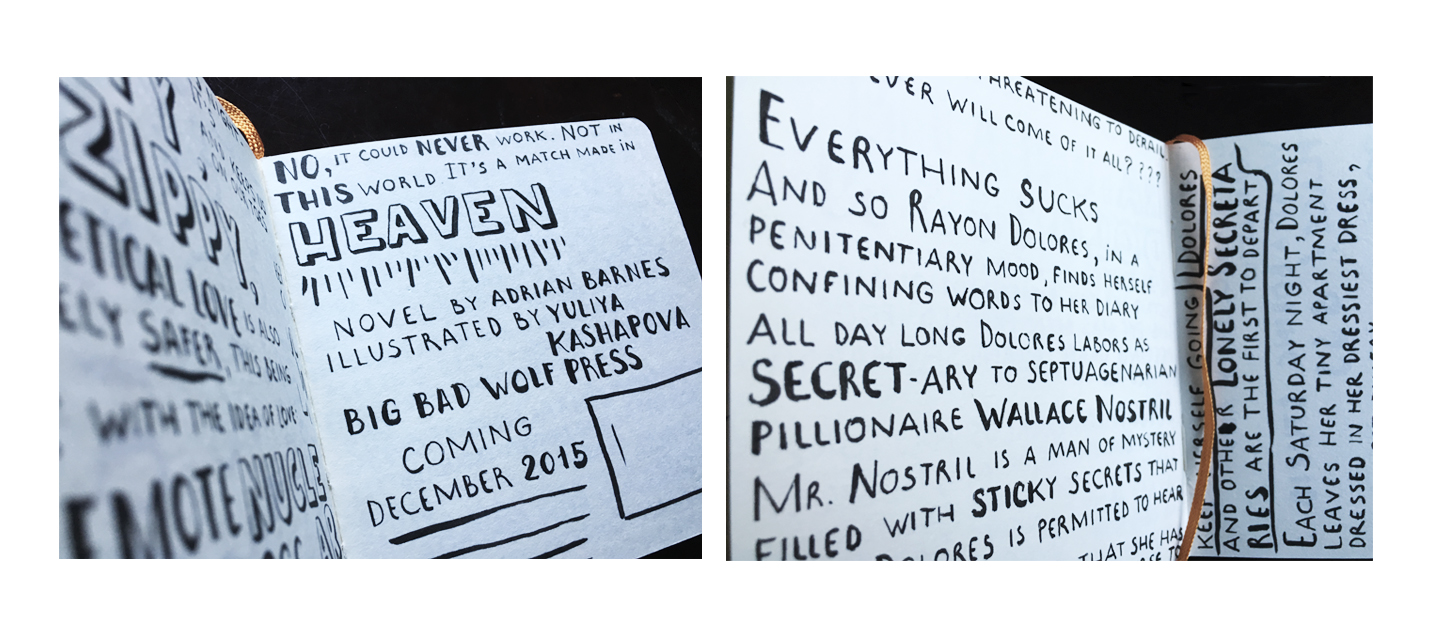 ZIPPY,
ETICAL LOVE IS ALSO
ELY SAFER, THIS BEING
WITH THE IDEA OF LOVE
EMOTE NUCLE
NO, IT COULD NEVER WORK. NOT IN
THIS WORLD. IT'S A MATCH MADE IN
HEAVEN
NOVEL BY ADRIAN BARNES
ILLUSTRATED BY YULIYA
KASHAPOVA
BIG BAD WOLF PRESS
COMING
DECEMBER 2015
THREATENING TO DERAIL
EVER WILL COME OF IT ALL????
EVERYTHING SUCKS
AND SO RAYON DOLORES, IN A
PENITENTIARY MOOD, FINDS HERSELF
CONFINING WORDS TO HER DIARY
ALL DAY LONG DOLORES LABORS AS
SECRET-ARY TO SEPTUAGENARIAN
PILLIONAIRE WALLACE NOSTRIL
MR. NOSTRIL IS A MAN OF MYSTERY
FILLED WITH STICKY SECRETS THAT
DOLORES IS PERMITTED TO HEAR
THAT SHE HAS
KEEP HERSELF GOING DOLORES
AND OTHER LONELY SECRETA
RIES ARE THE FIRST TO DEPART
EACH SATURDAY NIGHT, DOLORES
LEAVES HER TINY APARTMENT
DRESSED IN HER DRESSIEST DRESS,